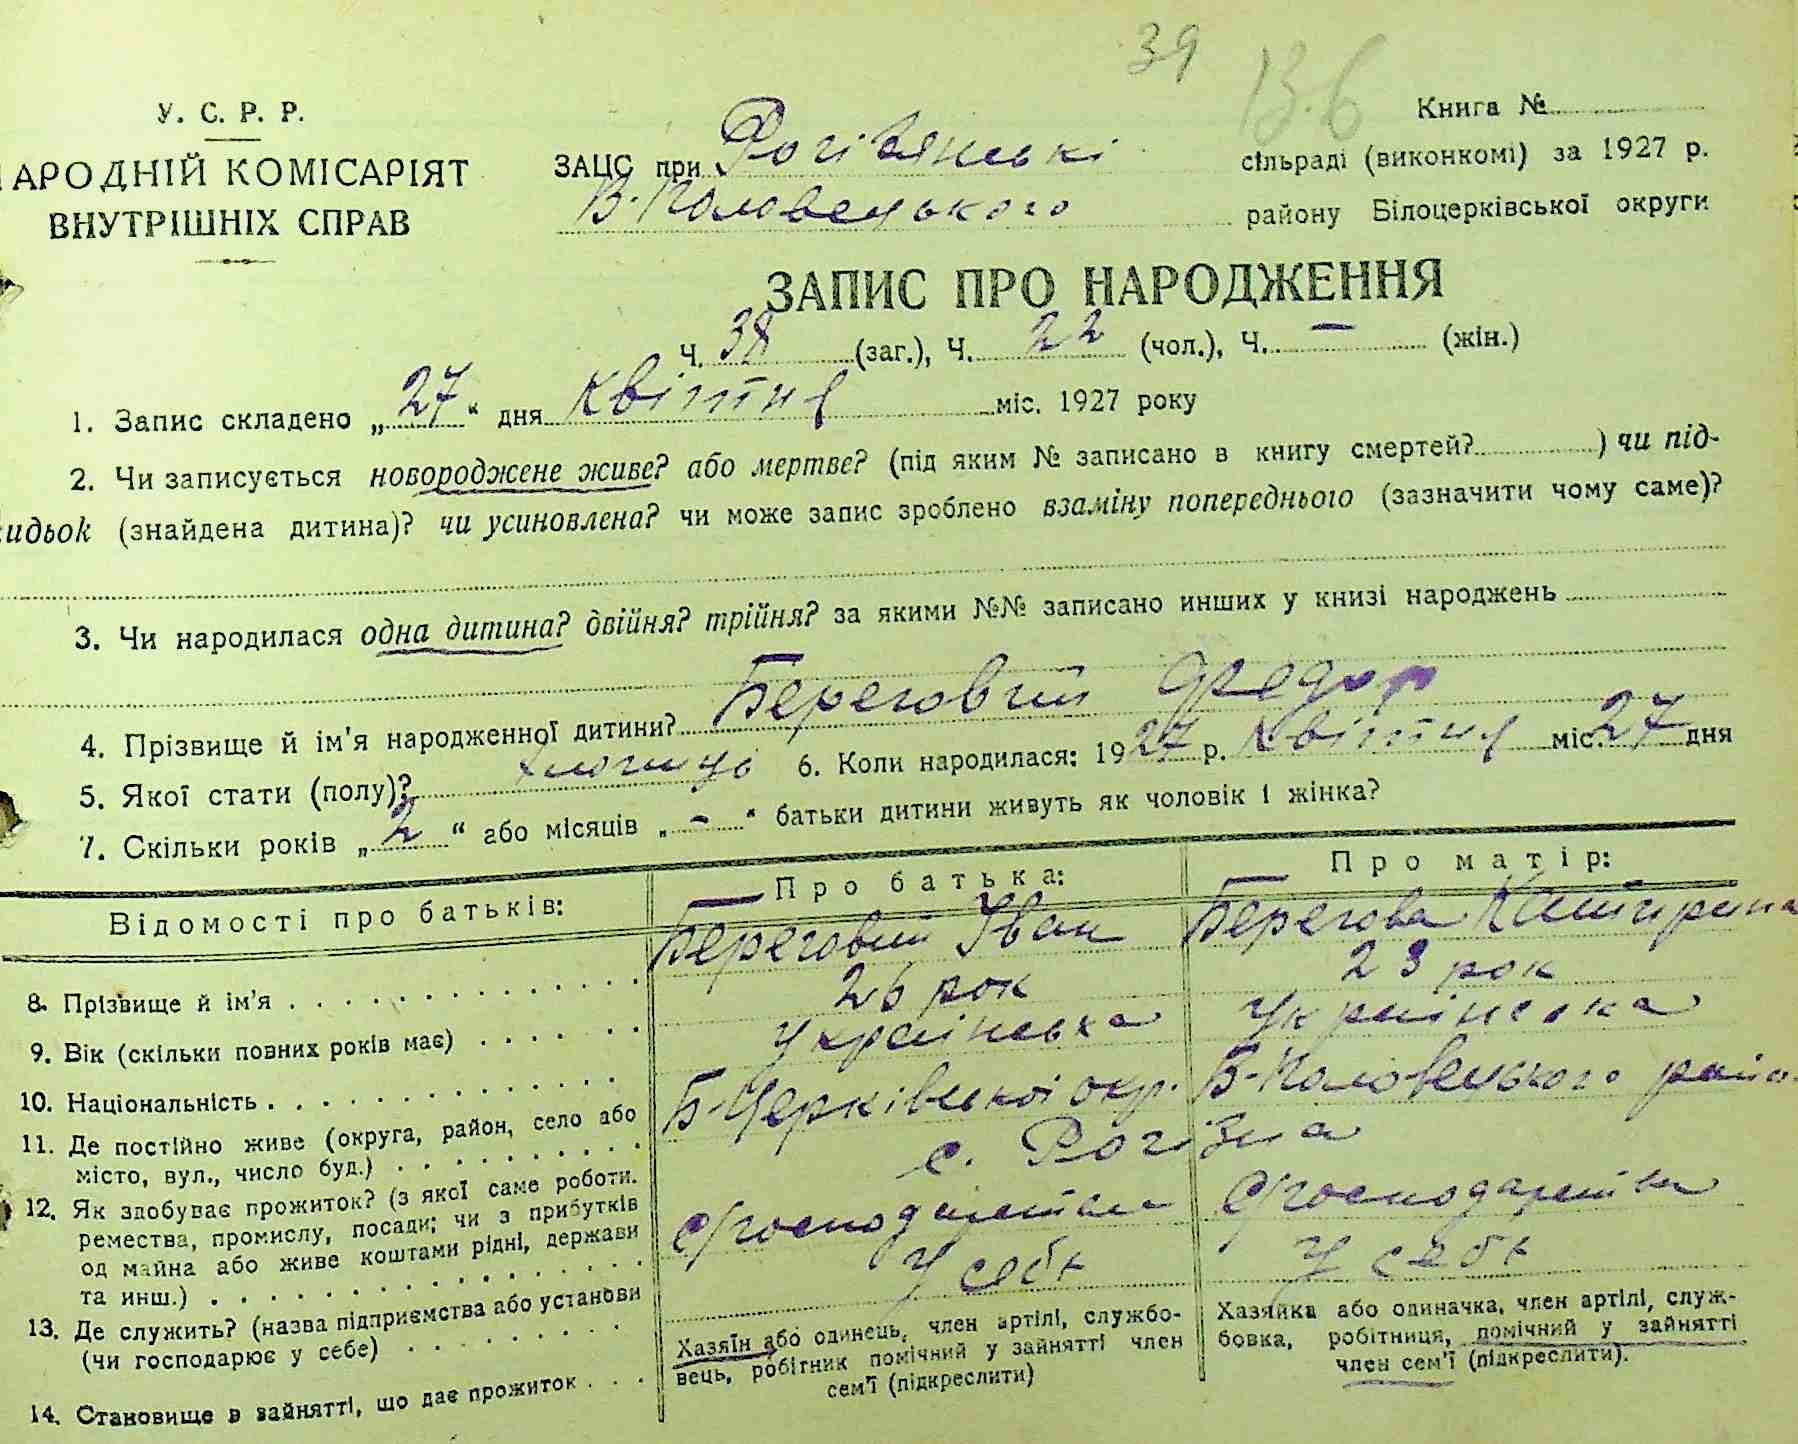 39
В.б
У. С. Р. Р.
НАРОДНІЙ КОМІСАРІЯТ
ВНУТРІШНІХ СПРАВ
Книга №
ЗАЦС при Рогізянські сільраді (виконкомі) за 1927 р.
В-Половецького району Білоцерківської округи
ЗАПИС ПРО НАРОДЖЕННЯ
Ч. 38 (заг.), Ч. 22 (чол.), Ч. — (жін.)
1. Запис складено „27“ дня Квітня міс. 1927 року
2. Чи записується новороджене живе? або мертве? (під яким № записано в книгу смертей? ) чи під-
кидьок (знайдена дитина)? чи усиновлена? чи може запис зроблено взаміну попереднього (зазначити чому саме)?
3. Чи народилася одна дитина? двійня? трійня? за якими №№ записано инших у книзі народжень
4. Прізвище й ім'я народженної дитини? Береговий Федор
5. Якої стати (полу)? хлопець 6. Коли народилася: 1927 р. Квітня міс. 27 дня
7. Скільки років „2“ або місяців „-“ батьки дитини живуть як чоловік і жінка?
Відомості про батьків: Про батька: Про матір:
8. Прізвище й ім'я Береговий Іван Берегова Катирина
9. Вік (скільки повних років має) 26 рок 23 рок
10. Національність українська українська
11. Де постійно живе (округа, район, село або Б-Церківської окр. В-Половецького район
місто, вул., число буд.) с. Рогізна
12. Як здобуває прожиток? (з якої саме роботи.
ремества, промислу, посади; чи з прибутків
од майна або живе коштами рідні, держави
та инш.)
13. Де служить? (назва підприємства або установи У себе У себе
(чи господарює у себе)
14. Становище в зайнятті, що дає прожиток
Хазяїн або одинець, член артілі, службо-
вець, робітник помічний у зайнятті член
сем'ї (підкреслити)
Хазяйка або одиначка, член артілі, служ-
бовка, робітниця, помічний у зайнятті
член сем'ї (підкреслити).